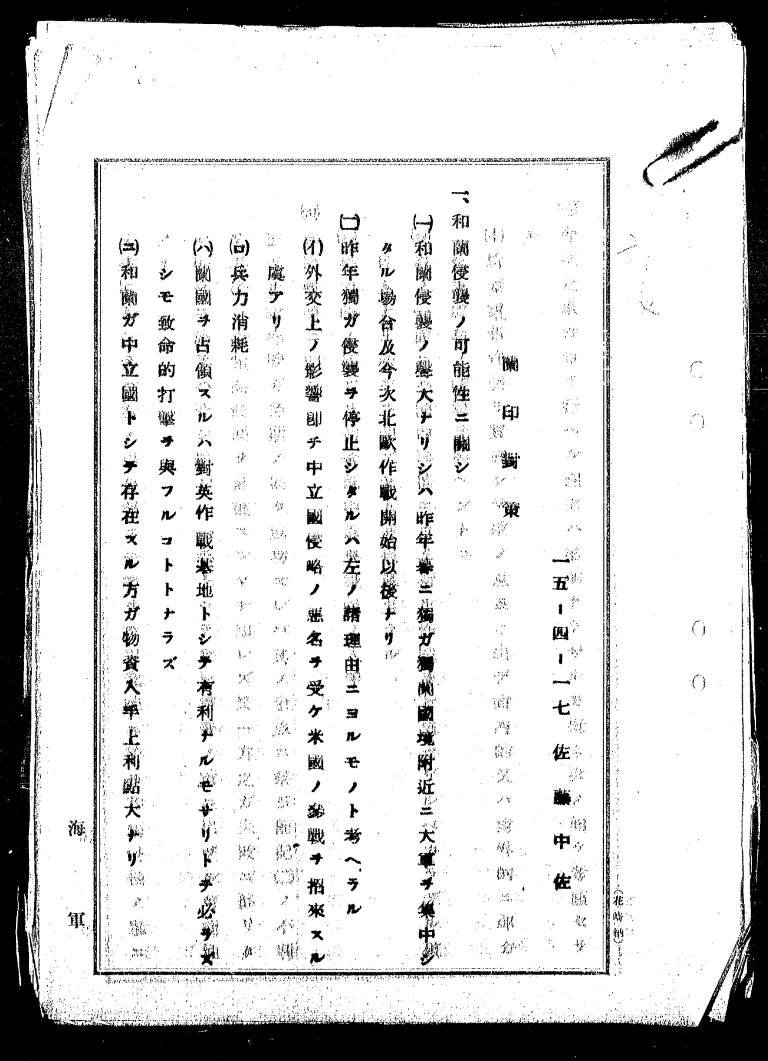 一五-四-一七 佐藤中佐
蘭印對策
一、和蘭侵襲ノ可能性ニ關シ
(一)和蘭侵襲ノ 大ナリシハ昨年暮ニ獨ガ獨蘭國境附近ニ大軍ヲ集中シ
タル場合及今次北歐作戰開始以後ナリ
(二)昨年獨ガ侵襲ヲ停止シタルハ左ノ諸理由ニヨルモノト考ヘラル
(イ)外交上ノ影響卽チ中立國侵略ノ惡名ヲ受ケ米國ノ參戰ヲ招來スル
虞アリ
(ロ)兵力消耗
(ハ)蘭國ヲ占領スルハ對英作戰基地トシテ有利ナルモサリトテ必ラズ
シモ致命的打擊ヲ與フルコトトナラズ
(ニ)和蘭ガ中立國トシテ存在スル方ガ物資入手上利點大ナリ
海軍